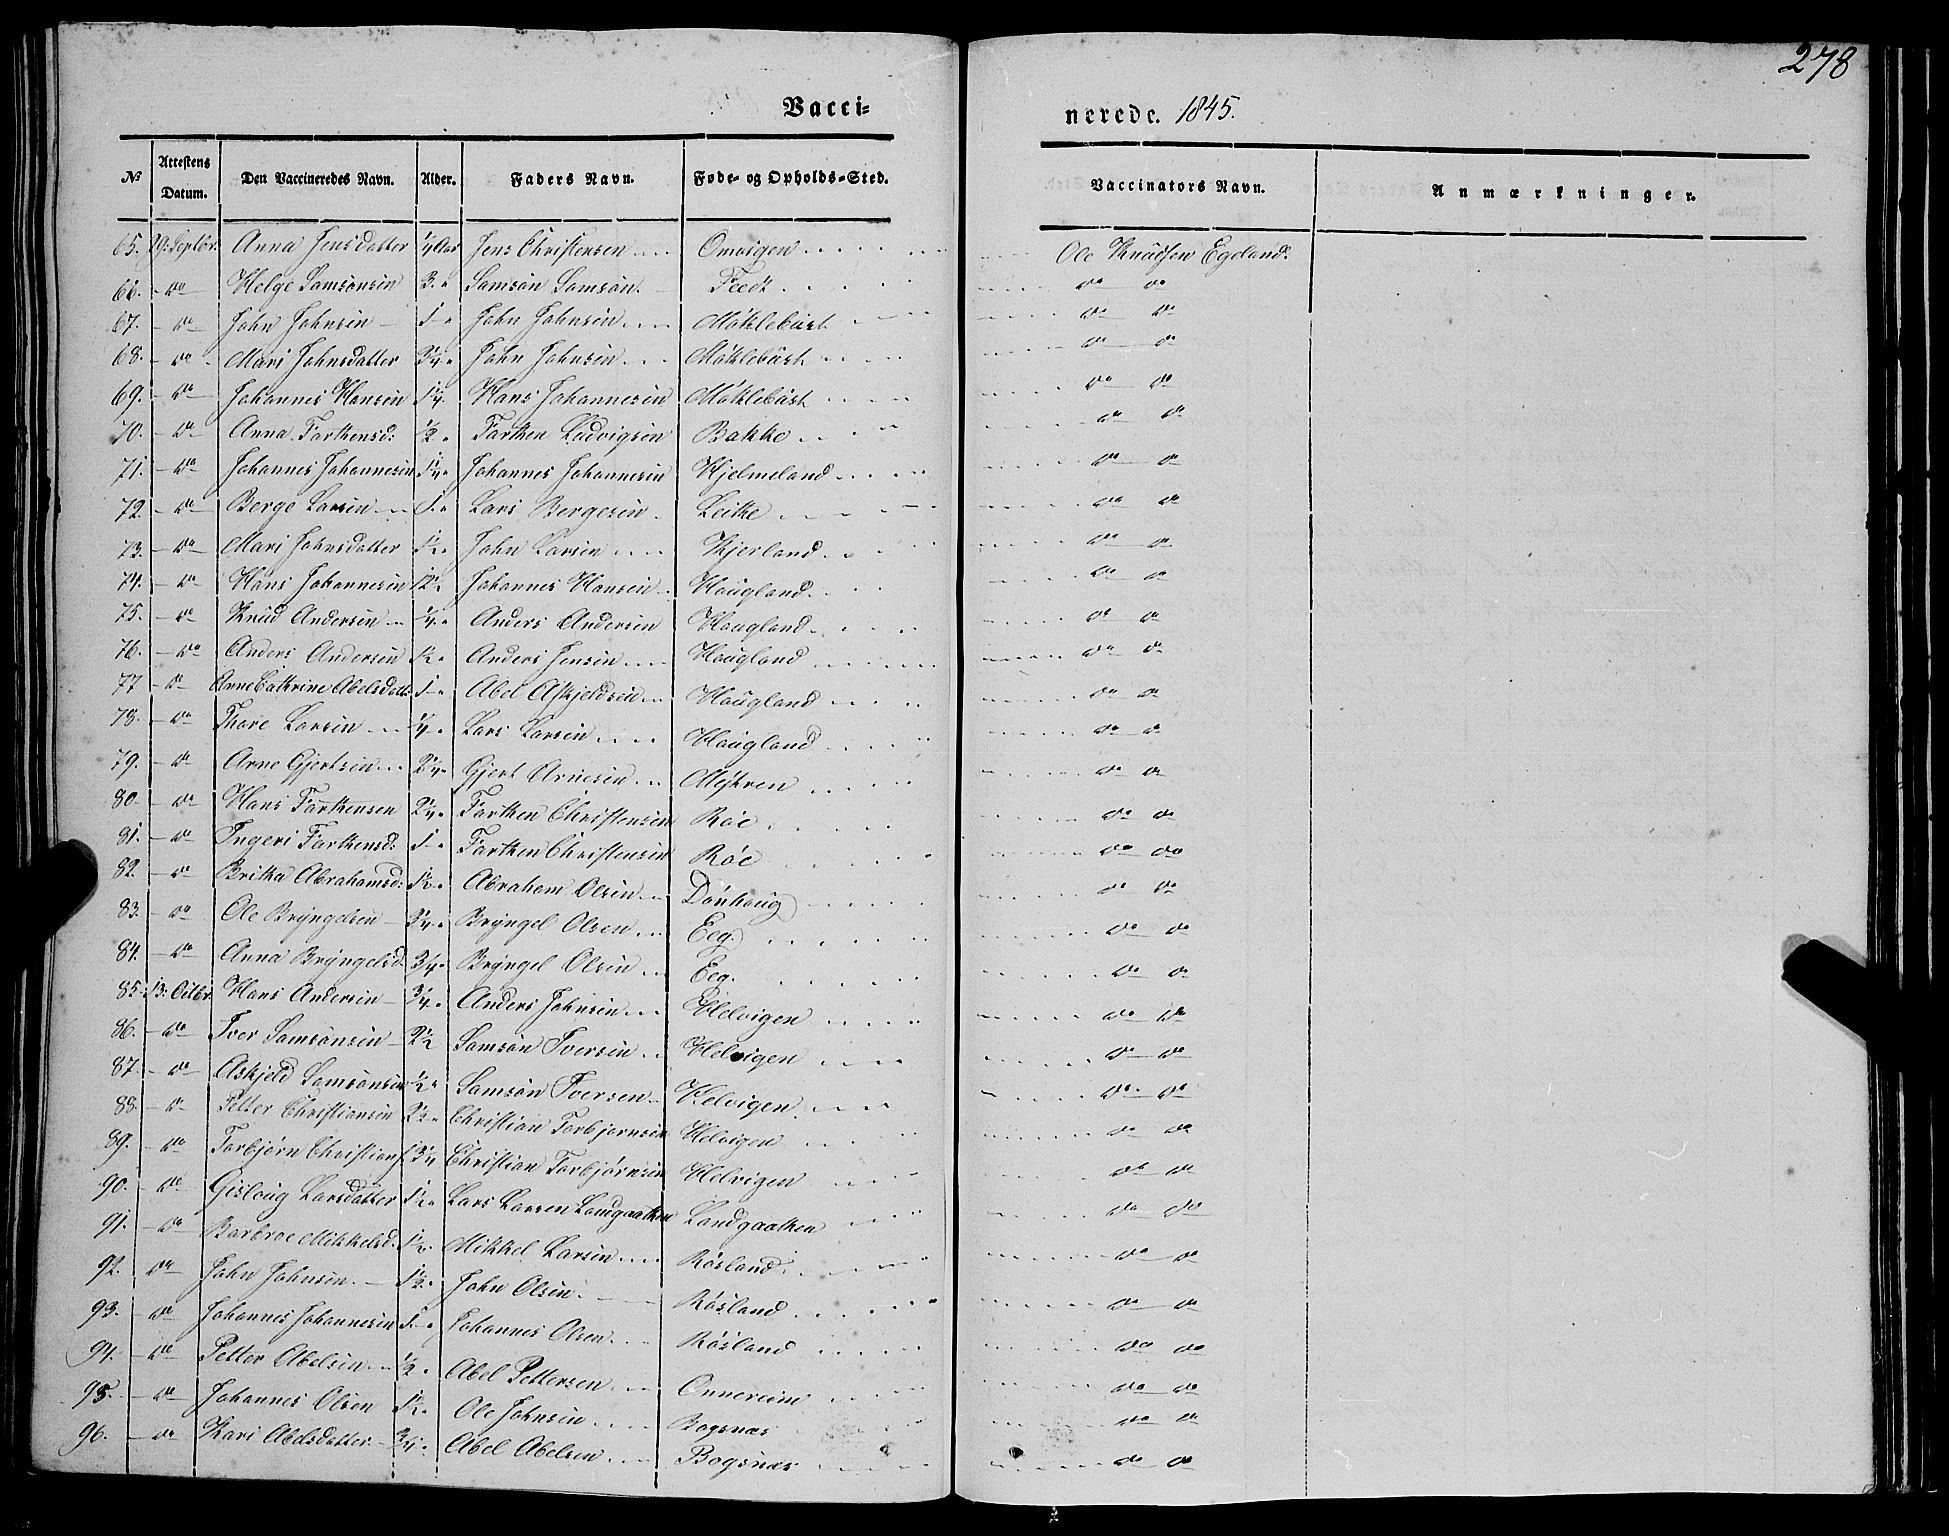 278
Vacci= nerede. 1845.
No Attestens Datum. Den Vaccineredes Navn. Alder. Faders Navn. Føde- og Opholds-Sted. Vaccinators Navn. Anmærkninger.
65. 29. Septbr. Anna Jensdatter 1/4 Aar Jens Christensen Omvigen Ole Knudsen Egeland.
66. do Helge Samsonsen 3 " Samson Samson. Tredt do do
67. do John Johnsen 1 " John Johnsen Møklebust do do
68. do Mari Johnsdatter 3/4 " John Johnsen Møklebust do do
69. do Johannes Hansen 1 1/4 Hans Johannesen Møklebust do do
70. do Anna Tarkensd: 1/2 " Tarken Ludvigsen Bakke do do
71. do Johannes Johannesen 1 1/4 " Johannes Johannesen Hjelmeland do do
72. do Berge Larsen 1 " Lars Bergesen Leite do do
73. do Mari Johnsdatter 1 1/2 " John Larsen Kjerland do do
74. do Hans Johannesen 12 " Johannes Hansen Haugland do do
75. do Knud Andersen 1/4 " Anders Andersen Haugland do do
76. do Anders Andersen 1/2 " Anders Jensen Haugland do do
77 do Anne Cathrine Abelsdatt: 1 " Abel Askjeldsen Haugland do do
78. do Thore Larsen 1/4 " Lars Larsen Haugland do do
79. do Arne Gjertsen 2 1/4 " Gjert Arnesen Myhren do do
80 do Hans Tarkensen 2 1/4 " Tarken Christensen Røe do do
81. do Ingeri Tarkensd: 1 " Tarken Christensen Røe do do
82. do Britha Abrahamsd: 1 1/2 " Abraham Olsen Dønhaug do do
83. do Ole Bryngelsen 3/4 " Bryngel Olsen Eeg. do do
84. do Anna Bryngelsd. 3/4 " Bryngel Olsen Eeg. do do
85. 13. Octbr. Hans Andersen 3/4 " Anders Johnsen Helvigen do do
86. do Iver Samsonsen 2 1/2 Samson Iversen Helvigen do do
87 do Askjeld Samsonsen 1/2 " Samson Iversen Helvigen do do
88. do Petter Christiansen 2 1/2 " Christian Torbjørnsen Helvigen do do
89. do Torbjørn Christians. 3/4 Christian Torbjørnsen Helvigen do do
90. do Gislaug Larsdatter 1 1/2 " Lars Larsen Landgaatten Landgaatten do do
91. do Barbroe Mikkelsd. 1 1/2 " Mikkel Larsen Røsland do do
92. do John Johnsen. 1 1/2 " John Olsen. Røsland do do
93. do Johannes Johannesen 1 " Johannes Olsen Røsland do do
94. do Petter Abelsen 1/2 " Abel Pettersen Onnereim do do
95. do Johannes Olsen 1 1/2 " Ole Johnsen Bogsnæs do do
96. do Kari Abelsdatter 3/4 " Abel Abelsen Bogsnæs do do